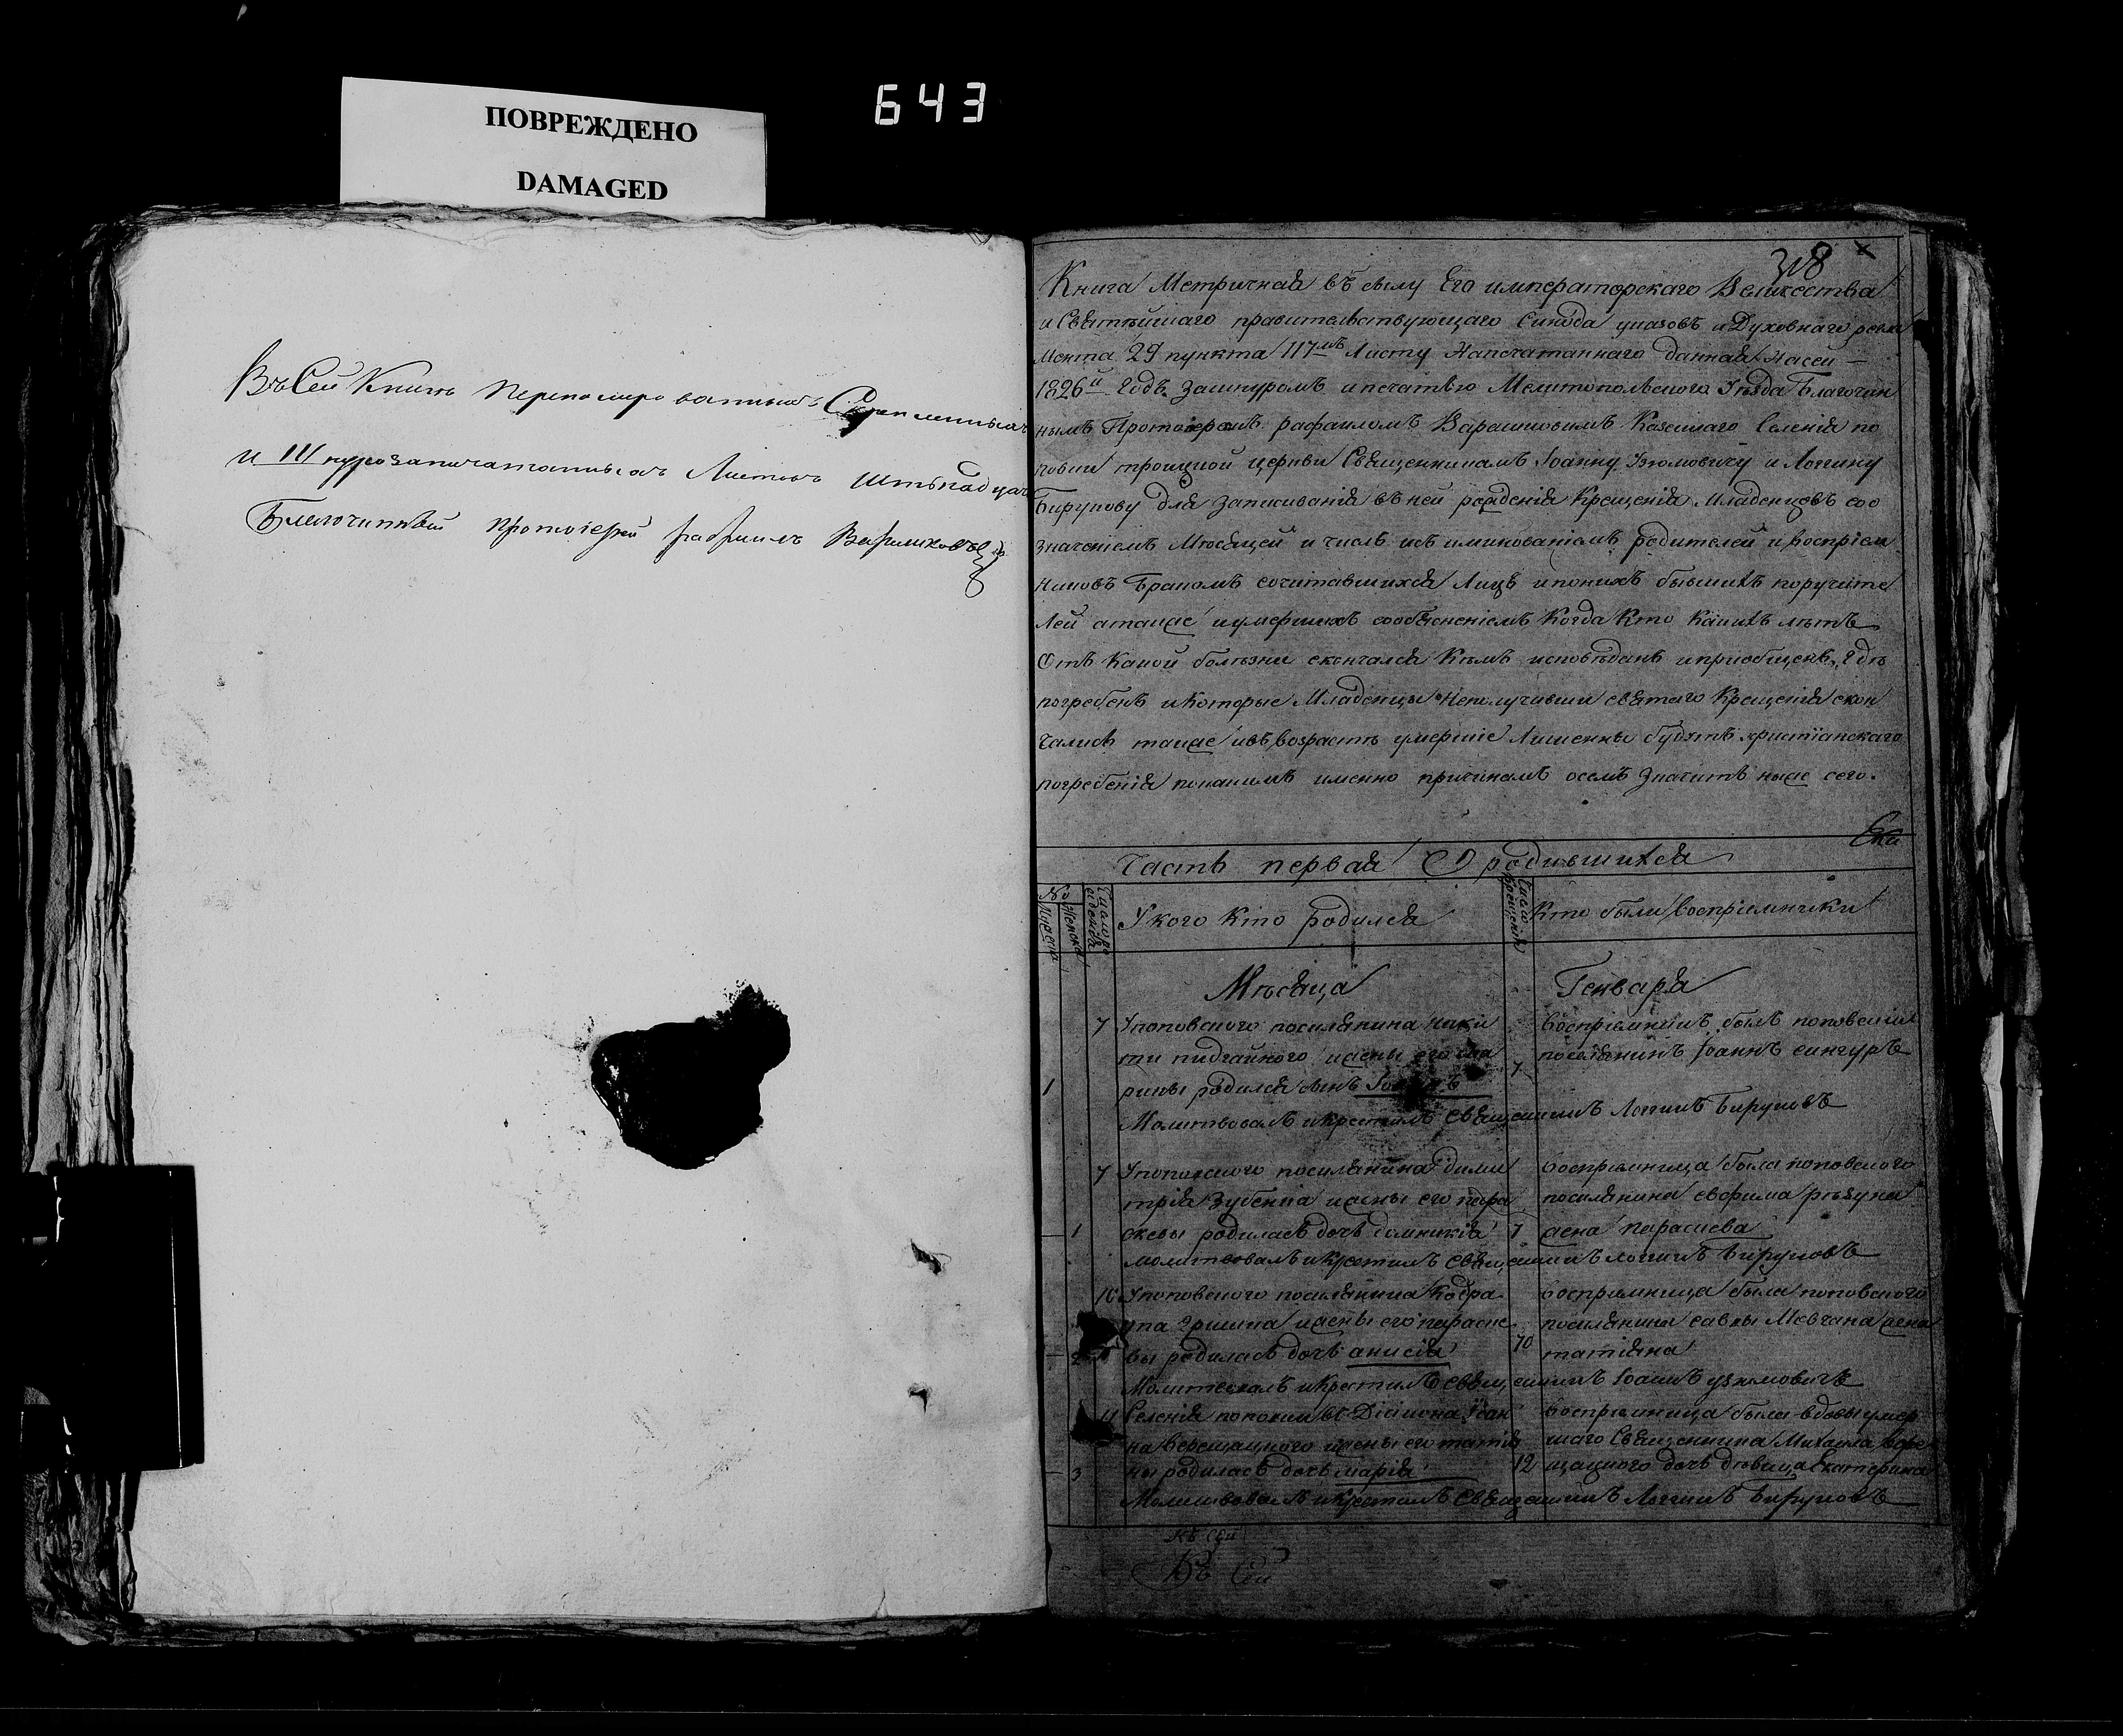 ПОВРЕЖДЕНО
DAMAGED
643
Въ Сей Книгѣ перенумерованныхъ Скрепленныхъ
и Шнурозапечатанныхъ Листовъ шѣснадцать
Благочинный протоіерей Рафаилъ Варшковъ
318
Книга Метричная въ силу Его императорскаго Величества
и Святѣйшаго правительствующаго Синода указовъ и Духовнаго регла
мента 29 пункта 117мъ Листу Напечатаннаго данная Насей
1826й Годъ зашнуромъ ипечатью Мелитопольского Уѣзда Благочин
нымъ Протоіеромъ рафаиломъ Варашковимъ Казеннаго Селенія по
повки троицкой церкви Священникамъ Іоанну Узюмовичу и Логгину
Бирукову для записиванія въ ней рожденія Крещенія Младенцовъ соо
значеніемъ Мѣсяцей и числъ исъ имянованіемъ родителей и воспріем
никовъ бракомъ сочитавшихся Лицъ ипонихъ бывшихъ поручите
лей атакже иумершихъ сообясненіемъ Когда Кто Какихъ лѣтъ
Отъ Какой болѣзни скончался Кѣмъ исповѣданъ ипріобщенъ, гдѣ
погребенъ иКоторые Младенцы Неполучивши святаго Крещенія скон
чались также ивъ возрастѣ умершіе Лишенны будутъ христіанскаго
погребенія покакимъ именно причинамъ осемъ значитъ ниже сего.
Ека
Часть первая О родившихся
№
Мужеска
Женска
Число рожденія
У кого Кто родился
Число крещенія
Кто были воспріемники
Мѣсяца Генваря
7 Упоповского поселянина ники
ти пидгайного ижены его ма
1 рины родился сынъ Іоаннъ
7
воспріемникъ былъ поповскій
поселянинъ Іоаннъ сингуръ
Молитвовалъ икрестилъ священникъ Логгинъ Бируковъ
7 Упоповского поселянина дими
трія Зубенка ижены его пара
1 скевы родилась дочь домникія
7
воспріемница была поповского
поселянина евфима рѣзуна
жена параскева
молитвовалъ икрестилъ священникъ логгинъ Бируковъ
10 Упоповского поселянина Кодра
упа Гришка ижены его параске
2 вы родилась дочь анисія
10
воспріемница была поповского
поселянина саввы Мовчана жена
татіяна
Молитвовалъ икрестилъ священникъ Іоаннъ узюмовичъ
11 Селенія поповки въ Діякона Іоан
на верещацкого ижены его татія
3 ны родилась дочь марія
12
воспріемница была вдовы умер
шаго Священника Михаила вере
щацкого дочь дѣвица Екатерина
Молитвовалъ икрестилъ священникъ Логгинъ Бируковъ
Къ Сей
Къ Сей